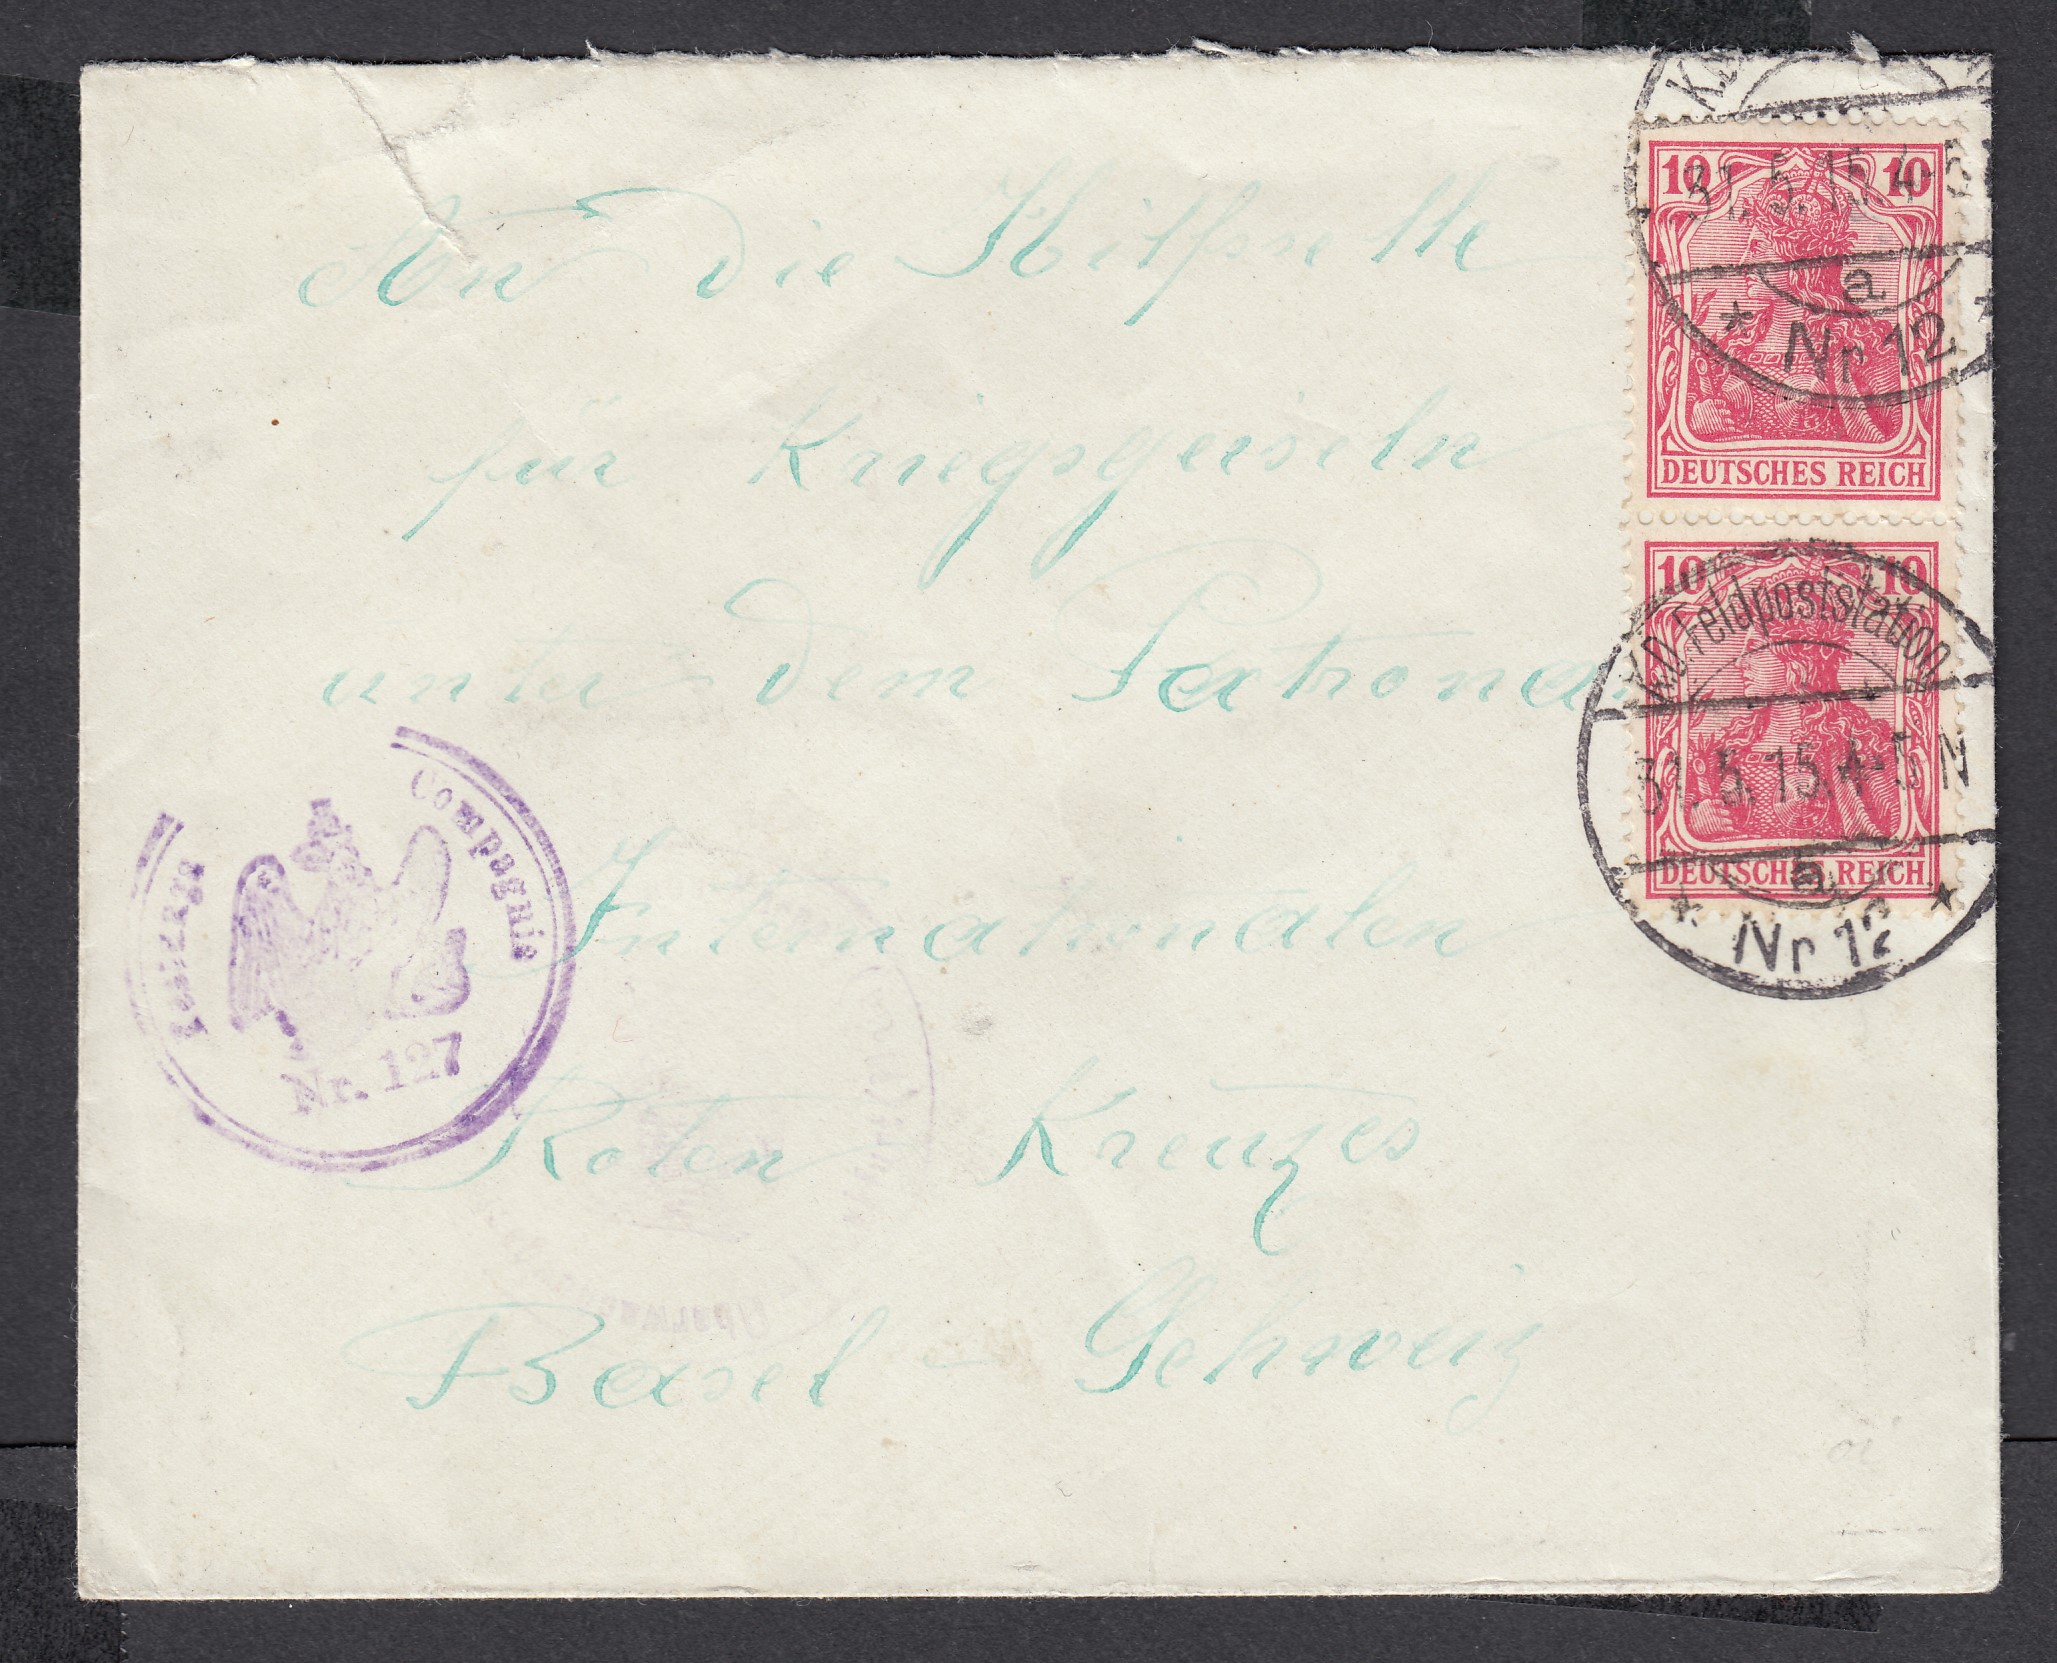 An die Hilfsstelle
für Kriegsgeiseln
unter dem Patrona
Internationalen
Roten Kreuzes
Basel - Schweiz
10 10
DEUTSCHES REICH
31.5.15.4-5
a
* Nr 12 *
10 10
DEUTSCHES REICH
K.D. Feldpoststation
31.5.15.4-5 N
a
* Nr 12 *
Festungs Compagnie
Nr. 127